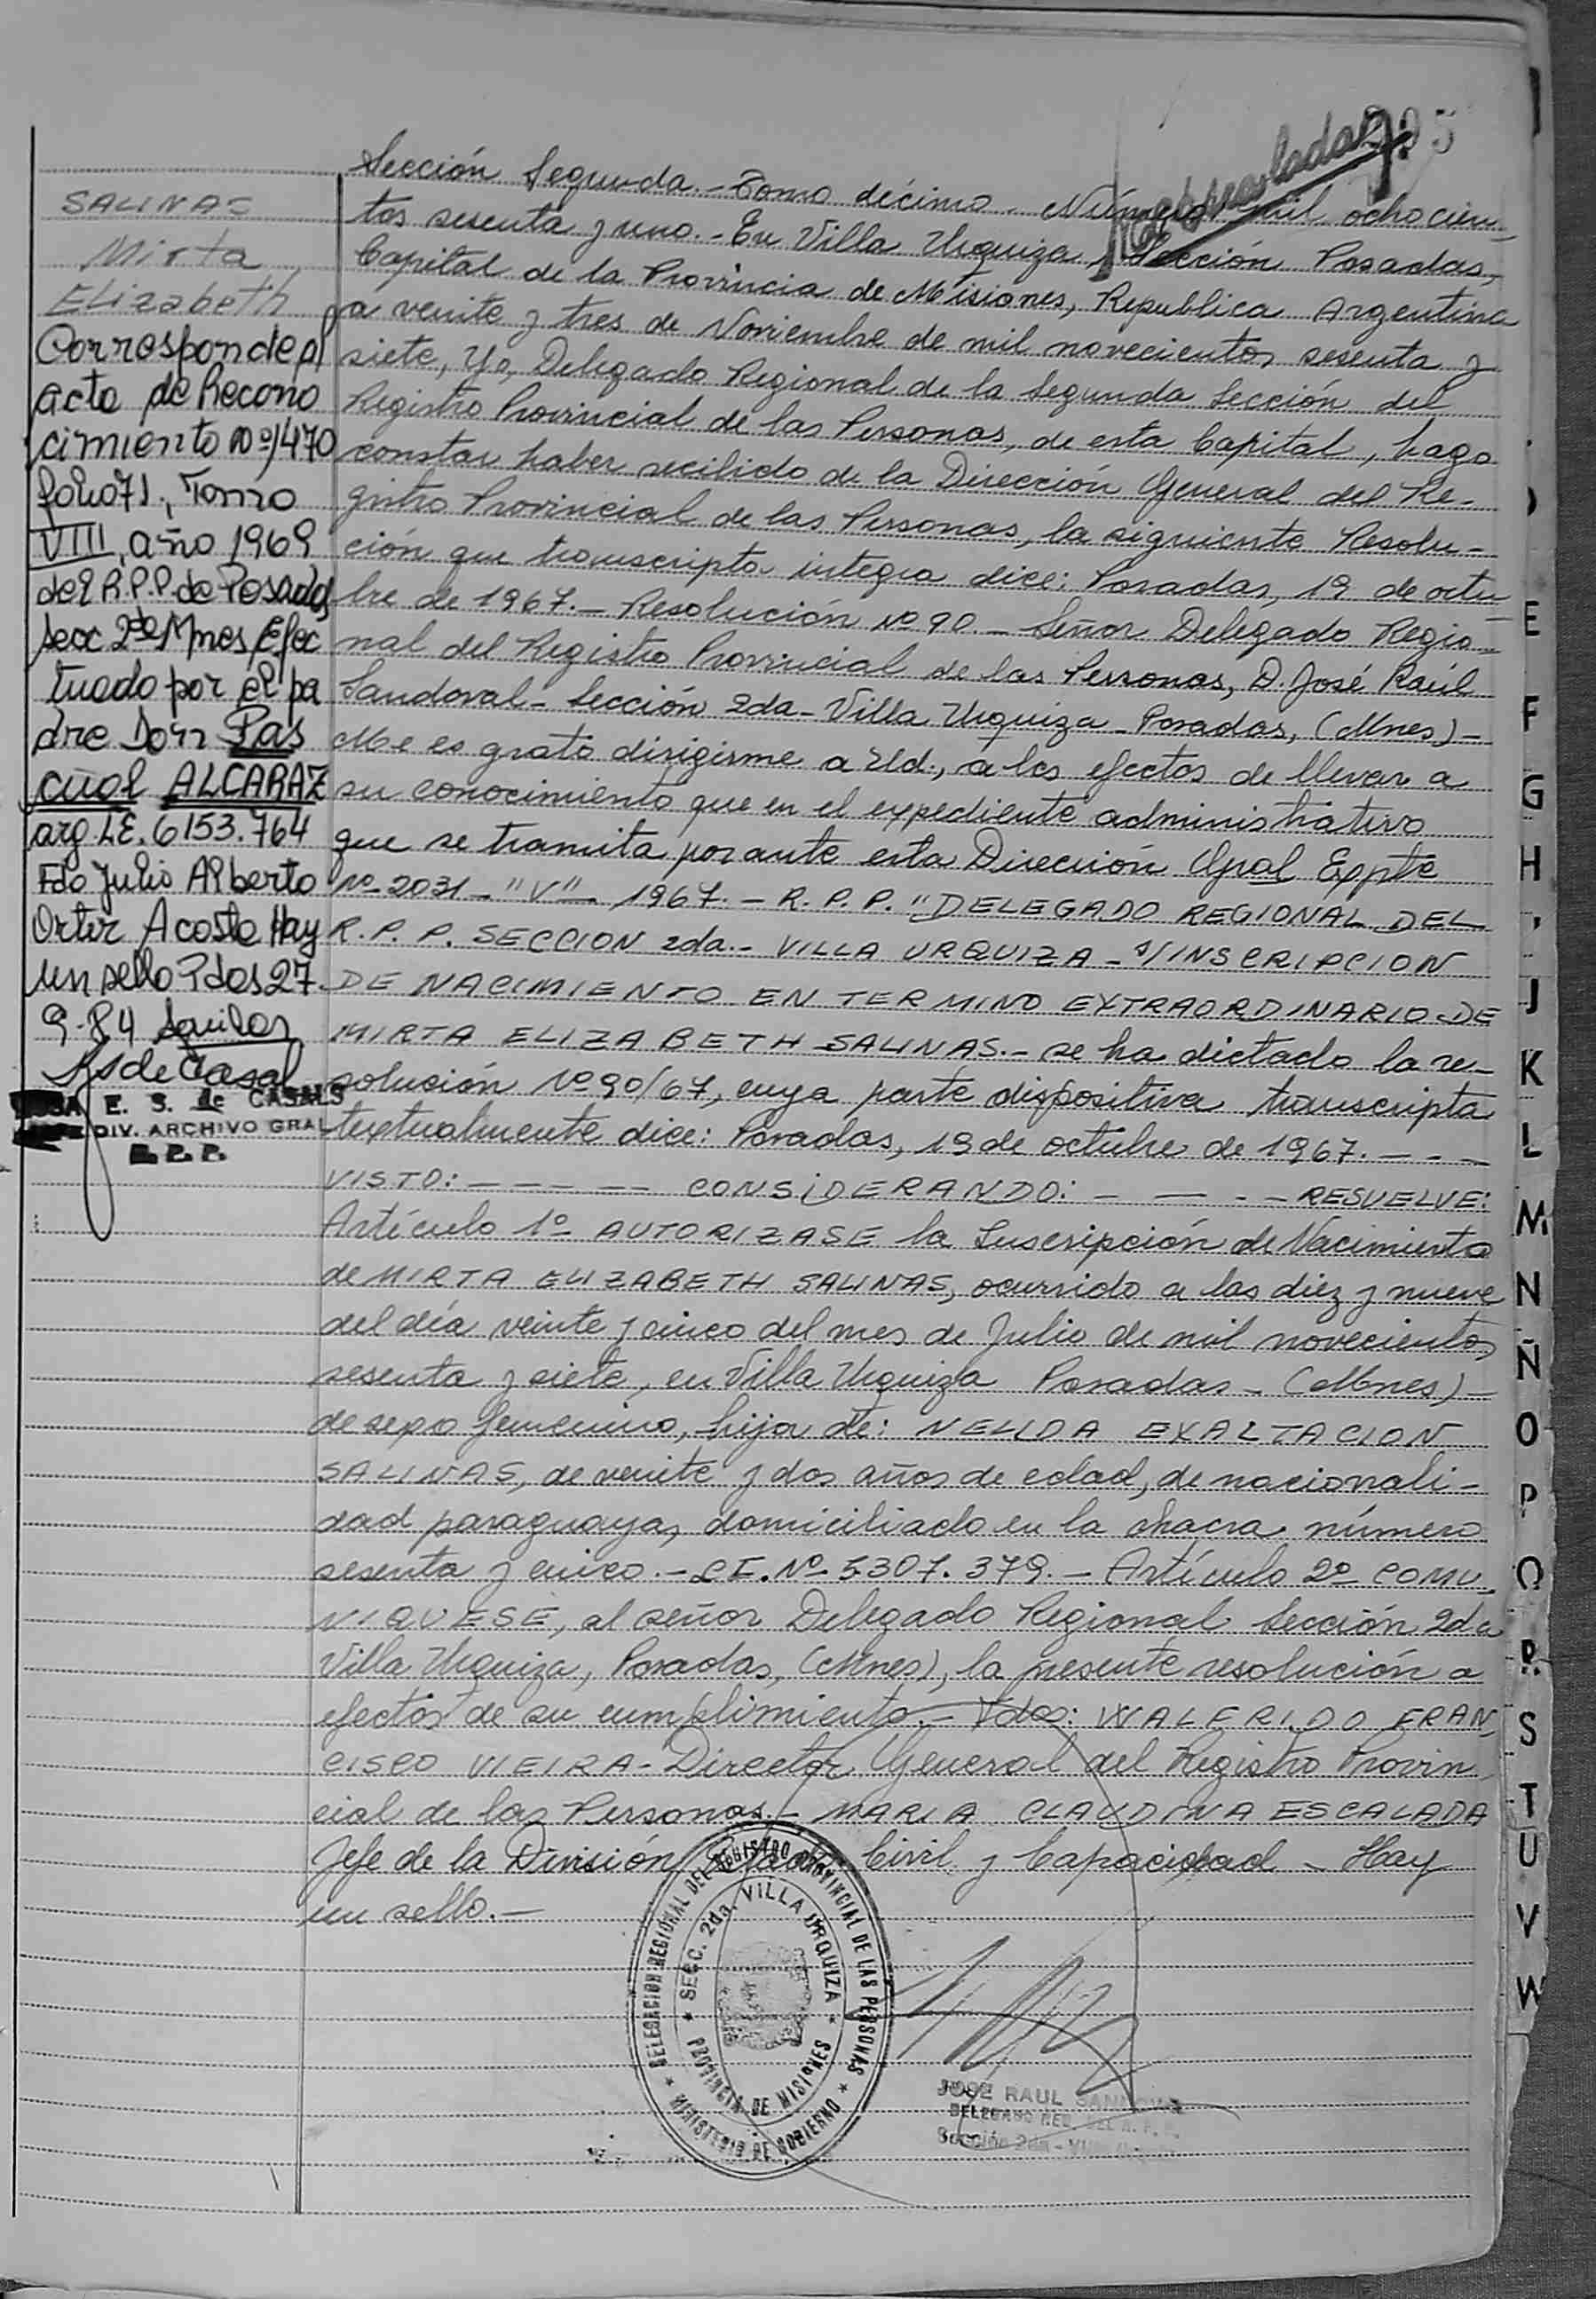 Sección Segunda.- Tomo décimo - Número mil ochocien-
tos sesenta y uno.- En Villa Urquiza, Sección Posadas,
Capital de la Provincia de Misiones, Republica Argentina
a veinte y tres de Noviembre de mil novecientos sesenta y
siete, Yo, Delegado Regional de la Segunda Sección del
Registro Provincial de las Personas, de esta Capital, hago
constar haber recibido de la Dirección General del Re-
gistro Provincial de las Personas, la siguiente Resolu-
ción que transcripta integra dice: Posadas, 19 de octu-
bre de 1967.- Resolución Nº 90.- Señor Delegado Regio-
nal del Registro Provincial de las Personas, D. José Raúl
Sandoval- Sección 2da- Villa Urquiza - Posadas, (Mnes)-
Me es grato dirigirme a Ud., a los efectos de llevar a
su conocimiento que en el expediente administrativo
que se tramita por ante esta Dirección Gral Exppte
Nº 2031-"V"- 1967.- R.P.P. "DELEGADO REGIONAL DEL
R.P.P. SECCION 2da.- VILLA URQUIZA - s/INSCRIPCION
DE NACIMIENTO EN TERMINO EXTRAORDINARIO DE
MIRTA ELIZABETH SALINAS.- se ha dictado la re-
solución Nº 90/67, cuya parte dispositiva transcripta
textualmente dice: Posadas, 19 de octubre de 1967.- - -
VISTO: - - - - - CONSIDERANDO: - - - - RESUELVE:
Artículo 1º AUTORIZASE la Inscripción de Nacimiento
de MIRTA ELIZABETH SALINAS, ocurrido a las diez y nueve
del día veinte y cinco del mes de Julio de mil novecientos
sesenta y siete, en Villa Urquiza Posadas - (Mnes)-
de sexo femenino, hija de: NELIDA EXALTACION
SALINAS, de veinte y dos años de edad, de nacionali-
dad paraguaya, domiciliado en la chacra número
sesenta y cinco.- CE. Nº 5307.379.- Artículo 2º COMU-
NIQUESE, al señor Delegado Regional Sección 2da
Villa Urquiza, Posadas, (Mnes), la presente resolución a
efectos de su cumplimiento.- Fdos: WALFRIDO FRAN-
CISCO VIEIRA- Director General del Registro Provin-
cial de las Personas.- MARIA CLAUDINA ESCALADA
Jefe de la División Estado Civil y Capacidad - Hay
un sello.-
SALINAS
Mirta
ELizabeth
Corresponde al
acta de Recono
cimiento Nº 1470
folio 71, Tomo
VIII, año 1969
del R.P.P. de Posadas
secc 2da Mnes Efec
tuado por el pa
dre Don Pas
cual ALCARAZ
arg. LE. 6153.764
Fdo Julio Alberto
Ortiz Acosta Hay
un sello Pdas 27
9-84
E. S. de CASALS
DIV. ARCHIVO GRAL
R. P. P.
DELEGACION REGIONAL DEL REGISTRO PROVINCIAL DE LAS PERSONAS
MINISTERIO DE GOBIERNO
SECC. 2da. VILLA URQUIZA
PROVINCIA DE MISIONES
JOSE RAUL SANDOVAL
DELEGADO REG. DEL R. P. P.
Sección 2da - Villa
E
F
G
H
J
K
L
M
N
Ñ
O
P
Q
R
S
T
U
V
W